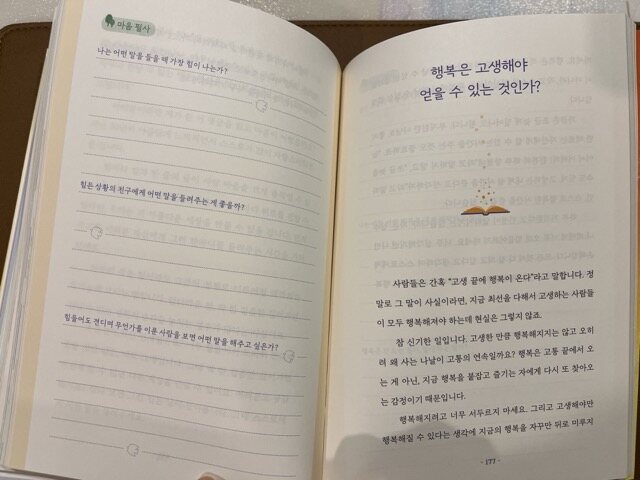 마음 필사
나는 어떤 말을 들을 때 가장 힘이 나는가?
힘든 상황의 친구에게 어떤 말을 들려주는 게 좋을까?
힘들어도 견디며 무언가를 이룬 사람을 보면 어떤 말을 해주고 싶은가?
행복은 고생해야
얻을 수 있는 것인가?
사람들은 간혹 “고생 끝에 행복이 온다”라고 말합니다. 정
말로 그 말이 사실이라면, 지금 최선을 다해서 고생하는 사람들
이 모두 행복해져야 하는데 현실은 그렇지 않죠.
참 신기한 일입니다. 고생한 만큼 행복해지지는 않고 오히
려 왜 사는 나날이 고통의 연속일까요? 행복은 고통 끝에서 오
는 게 아닌, 지금 행복을 붙잡고 즐기는 자에게 다시 또 찾아오
는 감정이기 때문입니다.
행복해지려고 너무 서두르지 마세요. 그리고 고생해야만
행복해질 수 있다는 생각에 지금의 행복을 자꾸만 뒤로 미루지
- 177 -